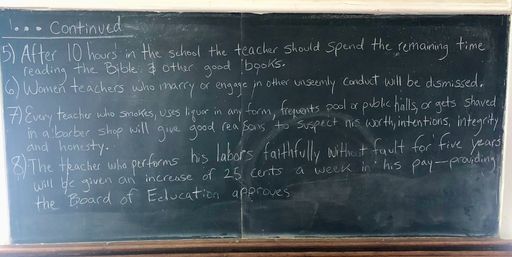 ... Continued
5) After 10 hours in the school the teacher should spend the remaining time
reading the Bible & other good books.
6) Women teachers who marry or engage in other unseemly conduct will be dismissed.
7) Every teacher who smokes, uses liquor in any form, frequents pool or public halls, or gets shaved
in a barber shop will give good reasons to suspect his worth, intentions, integrity
and honesty.
8) The teacher who performs his labors faithfully without fault for five years
will be given an increase of 25 cents a week in his pay—providing
the Board of Education approves